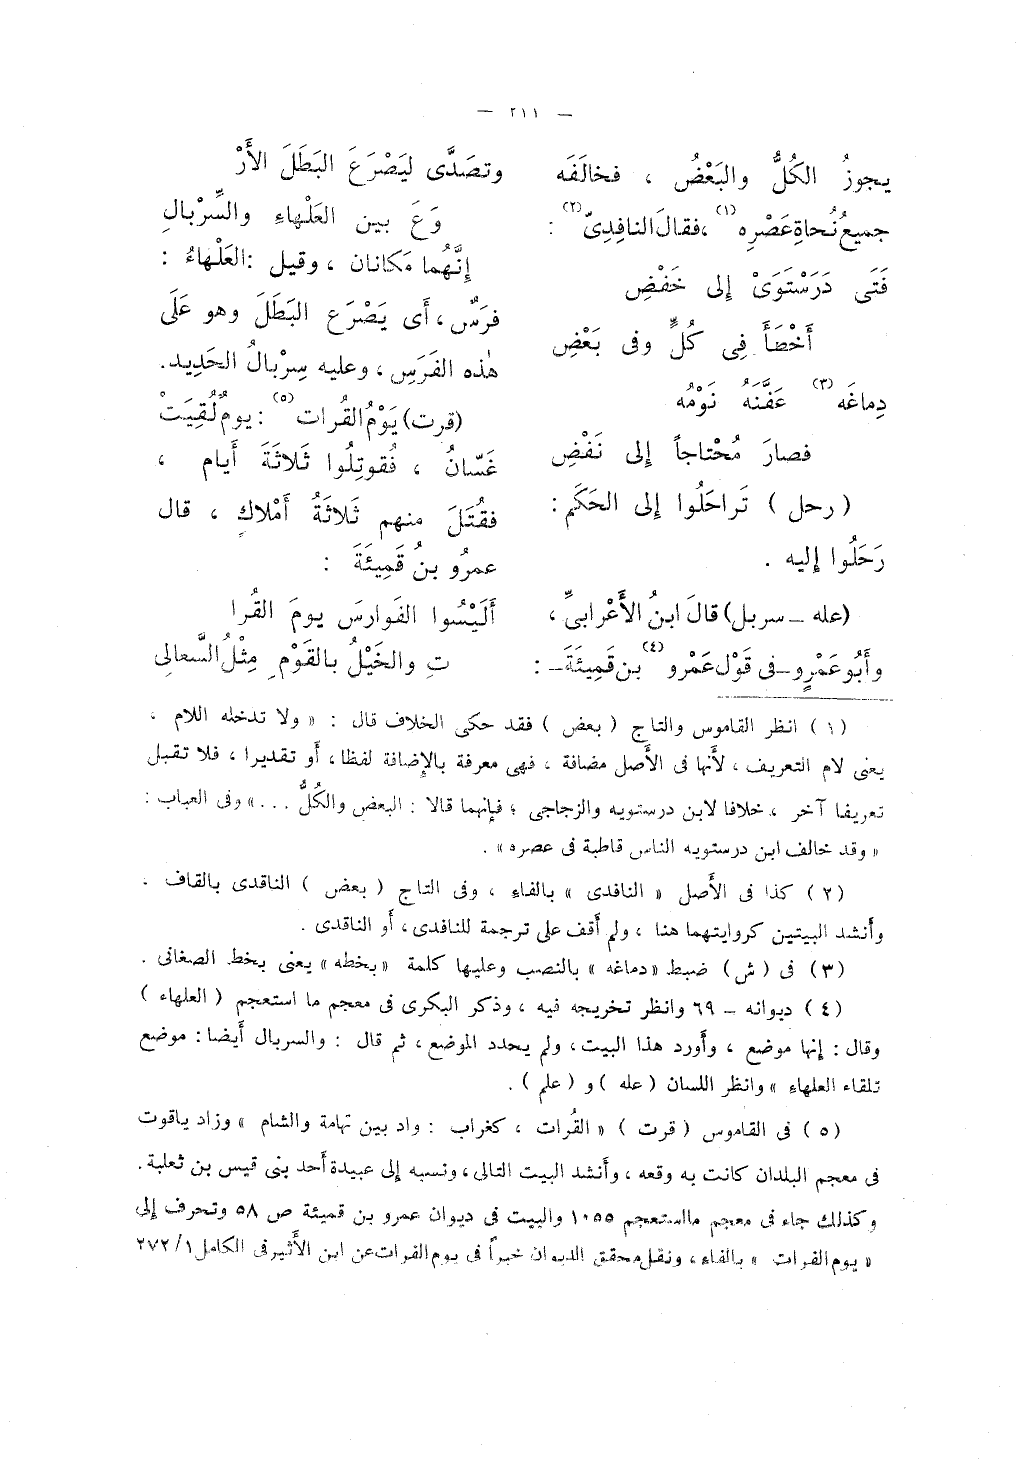 — ٢١١ —
يجوزُ الكُلُّ والبَعْضُ ، فخالَفَه
جميعُ نُحاةِ عَصْرِه (١) ، فقالَ النافِدِىّ (٢) :
فَتَى دَرَسْتَوَىْ إلى خَفْضِ
أَخْطَأَ فِى كُلٍّ وفى بَعْضِ
دِماغَه (٣) عَفَّنَهُ نَوْمُه
فصارَ مُحْتاجاً إلى نَفْضِ
( رحل ) تَراحَلُوا إلى الحَكَمِ :
رَحَلُوا إليه .
(عله ــ سربل) قالَ ابنُ الأَعْرابىِّ ،
وأَبُو عَمْرٍو ــ فى قَوْل عَمْرو (٤) بن قَمِيئَةَ ــ :
وتصَدَّى ليَصْرَعَ البَطَلَ الأَرْ
وَعَ بين العَلْهاءِ والسِّرْبالِ
إنَّهُما مَكانان ، وقيل : العَلْهاءُ :
فرَسٌ ، أى يَصْرَع البَطَلَ وهو عَلَى
هٰذه الفَرَسِ ، وعليه سِرْبالُ الحَدِيد.
(قرت) يَوْمُ القُرات (٥) : يومٌ لُقِيَتْ
غَسّانُ ، فُقوتِلُوا ثَلاثَةَ أَيام ،
فقُتَلَ منهم ثَلاثَةُ أَمْلاكٍ ، قال
عمرُو بنُ قَمِيئَةَ :
أَلَيْسُوا الفَوارسَ يومَ القُرا
تِ والخَيْلُ بالقَوْمِ مِثْلُ السَّعالِى
(١) انظر القاموس والتاج ( بعض ) فقد حكى الخلاف قال : « ولا تدخله اللام ،
يعنى لام التعريف ، لأَنها فى الأَصل مضافة ، فهى معرفة بالإِضافة لفظا ، أو تقديرا ، فلا تقبل
تعريفا آخر ، خلافا لابن درستويه والزجاجى ؛ فإنهما قالا : البعض والكُلُّ ...» وفى العباب :
« وقد خالف ابن درستويه الناس قاطبة فى عصره » .
(٢) كذا فى الأَصل « النافدى » بالفاء ، وفى التاج ( بعض ) الناقدى بالقاف .
وأَنشد البيتين كروايتهما هنا ، ولم أقف على ترجمة للنافدى ، أو الناقدى .
(٣) فى (ش) ضبط «دماغه» بالنصب وعليها كلمة «بخطه» يعنى بخط الصغانى .
(٤) ديوانه – ٦٩ وانظر تخريجه فيه ، وذكر البكرى فى معجم ما استعجم (العلهاء)
وقال : إنها موضع ، وأورد هذا البيت ، ولم يحدد الموضع ، ثم قال : والسربال أيضا : موضع
تلقاء العلهاء » وانظر اللسان ( عله ) و ( علم ) .
(٥) فى القاموس ( قرت ) « القُرات ، كغراب : واد بين تهامة والشام » وزاد ياقوت
فى معجم البلدان كانت به وقعه ، وأنشد البيت التالى ، ونسبه إلى عبيدة أحد بنى قيس بن ثعلبة .
وكذلك جاء فى معجم مااستعجم ١٠٥٥ والبيت فى ديوان عمرو بن قميئة ص ٥٨ وتحرف إلى
« يوم الفرات » بالفاء ، ونقل محقق الديوان خبراً فى يوم الفرات عن ابن الأَثير فى الكامل ١/ ٢٧٢